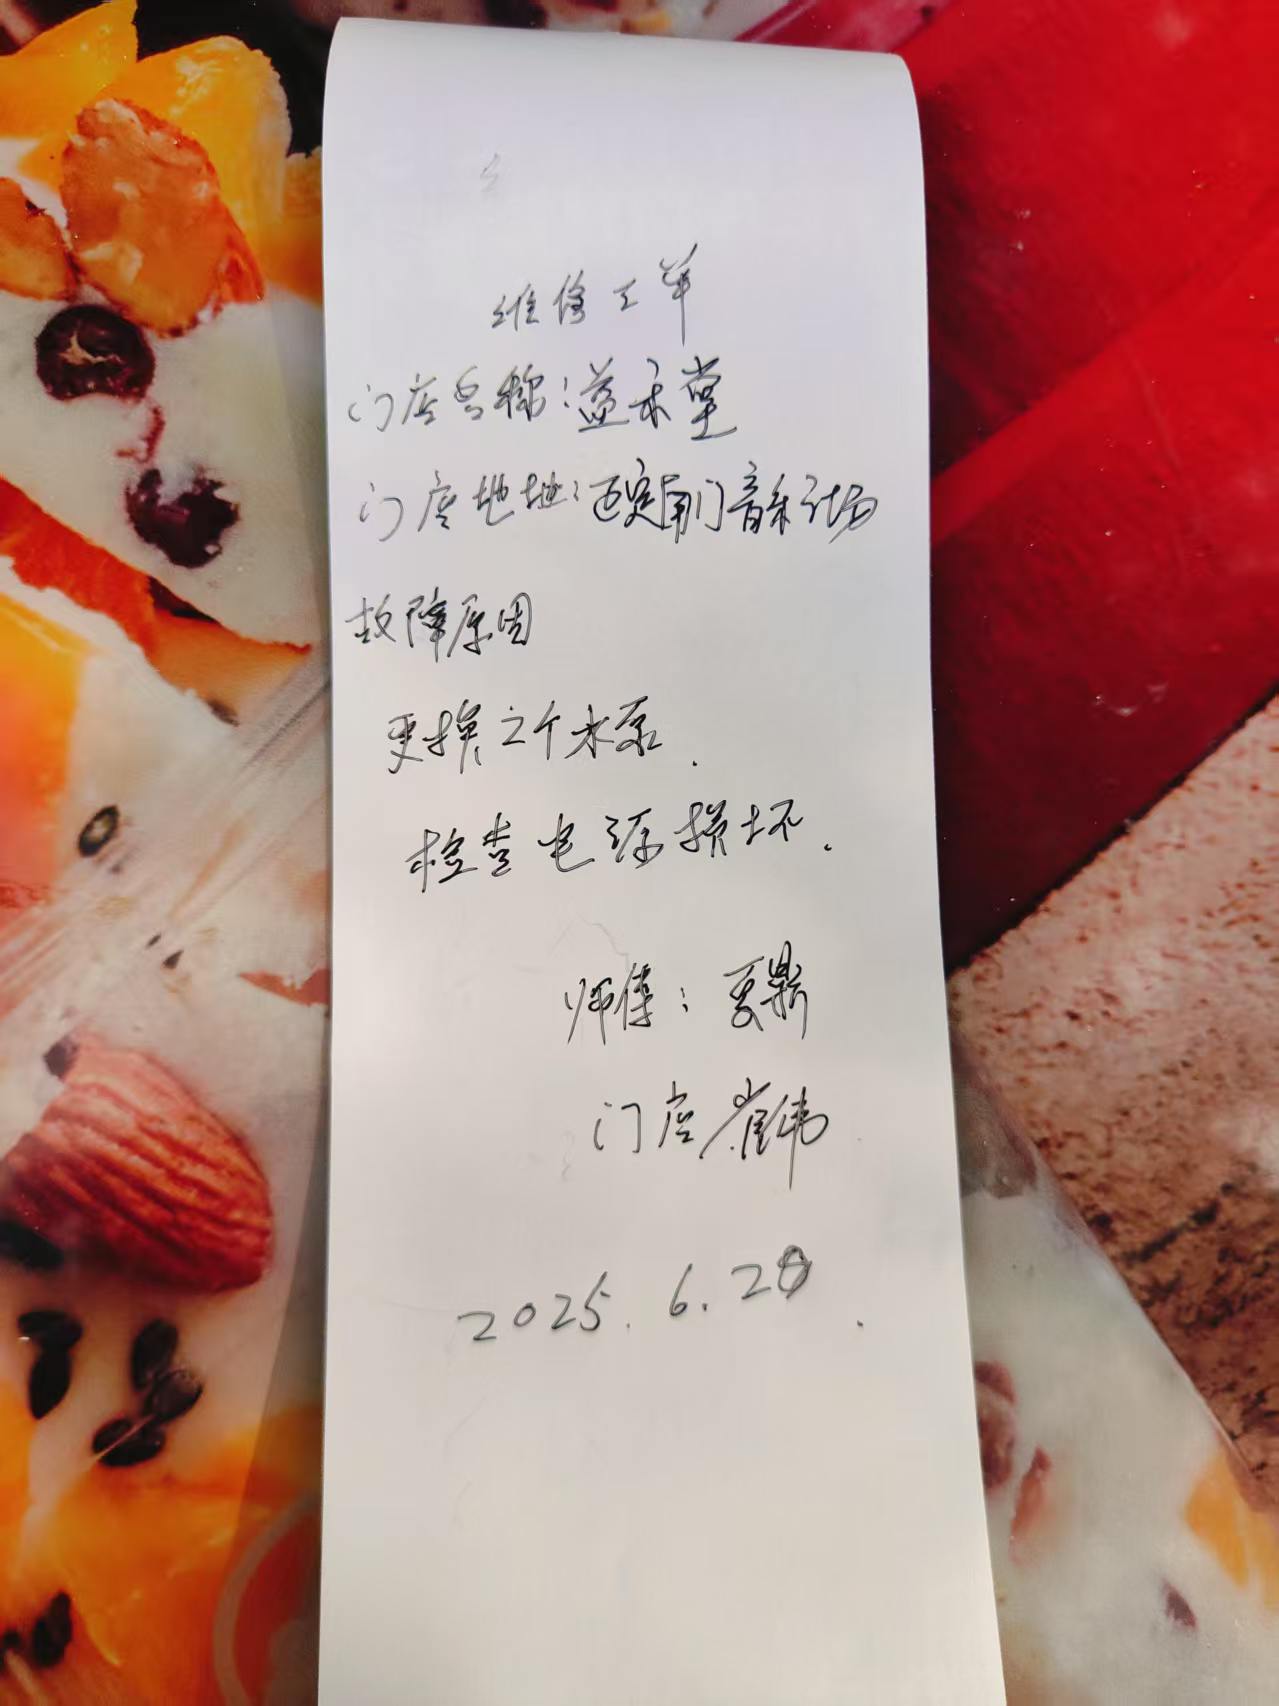 维修工单
门店名称:益禾堂
门店地址:还定南门音乐广场
故障原因
更换2个水泵.
检查电源损坏.
师傅:夏鼎
门店 崔伟
2025.6.28.